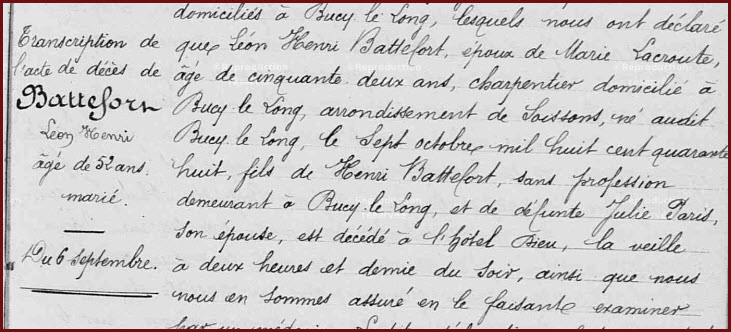 domiciliés à Bucy le Long, lesquels nous ont déclaré
que Léon Henri Battefort, époux de Marie Lacroute,
âgé de cinquante deux ans, charpentier domicilié à
Bucy le Long, arrondissement de Soissons, né audit
Bucy le Long, le Sept octobre mil huit cent quarante
huit, fils de Henri Battefort, sans profession
demeurant à Bucy le Long, et de défunte Julie Paris,
son épouse, est décédé à l'hôtel Dieu, la veille
à deux heures et demie du soir, ainsi que nous
nous en sommes assuré en le faisant examiner
par un médecin
Transcription de
l'acte de décès de
Battefort
Léon Henri
âgé de 52 ans.
marié.
Du 6 Septembre.